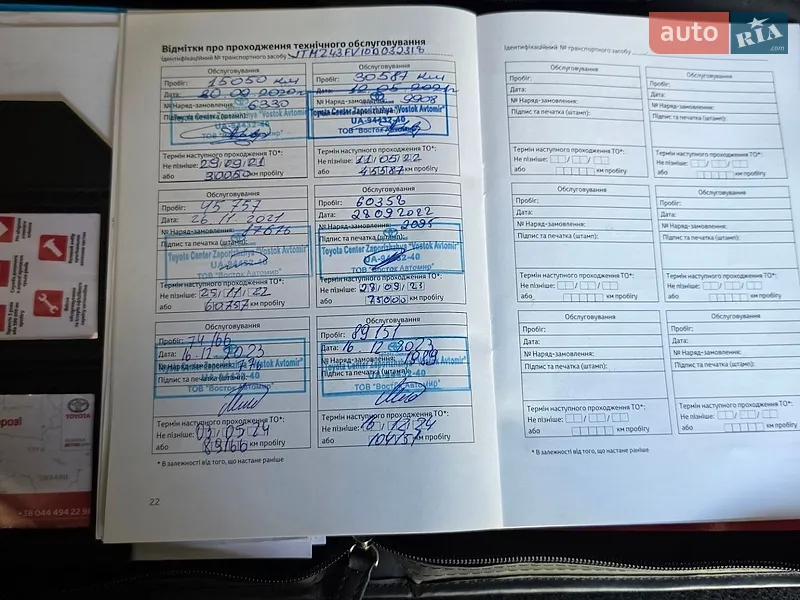 Відмітки про проходження технічного обслуговування
Ідентифікаційний № транспортного засобу JTMZ43FV10D032318
Обслуговування
Пробіг: 15050 км
Дата: 30 09 2020г
№ Наряд-замовлення: 6330
Підпис та печатка (штамп):
Toyota Center Zaporizhzhya "Vostok Avtomir"
UA-94432-40
ТОВ "Восток Автомир"
Термін наступного проходження ТО*:
Не пізніше: 29/09/21
або 30050 км пробігу
Обслуговування
Пробіг: 30587 км
Дата: 12 05 2021г
№ Наряд-замовлення: 9908
Підпис та печатка (штамп):
Toyota Center Zaporizhzhya "Vostok Avtomir"
UA-94432-40
ТОВ "Восток Автомир"
Термін наступного проходження ТО*:
Не пізніше: 11/05/22
або 45587 км пробігу
Обслуговування
Пробіг: 45757
Дата: 26 11 2021
№ Наряд-замовлення: 17676
Підпис та печатка (штамп):
Toyota Center Zaporizhzhya "Vostok Avtomir"
UA-94432-40
ТОВ "Восток Автомир"
Термін наступного проходження ТО*:
Не пізніше: 25/11/22
або 60757 км пробігу
Обслуговування
Пробіг: 60358
Дата: 28 09 2022
№ Наряд-замовлення: 2095
Підпис та печатка (штамп):
Toyota Center Zaporizhzhya "Vostok Avtomir"
UA-94432-40
ТОВ "Восток Автомир"
Термін наступного проходження ТО*:
Не пізніше: 28/09/23
або 75000 км пробігу
Обслуговування
Пробіг: 74166
Дата: 16.12.2023
№ Наряд-замовлення:
Підпис та печатка (штамп):
Toyota Center Zaporizhzhya "Vostok Avtomir"
UA-94432-40
ТОВ "Восток Автомир"
Термін наступного проходження ТО*:
Не пізніше: 03/05/24
або 89166 км пробігу
Обслуговування
Пробіг: 89151
Дата: 16.12.2023
№ Наряд-замовлення:
Підпис та печатка (штамп):
Toyota Center Zaporizhzhya "Vostok Avtomir"
UA-94432-40
ТОВ "Восток Автомир"
Термін наступного проходження ТО*:
Не пізніше: 16/12/24
або 104151 км пробігу
* В залежності від того, що настане раніше
22
Ідентифікаційний № транспортного засобу
Обслуговування
Пробіг:
Дата:
№ Наряд-замовлення:
Підпис та печатка (штамп):
Термін наступного проходження ТО*:
Не пізніше:
або км пробігу
Обслуговування
Пробіг:
Дата:
№ Наряд-замовлення:
Підпис та печатка (штамп):
Термін наступного проходження ТО*:
Не пізніше:
або км пробігу
Обслуговування
Пробіг:
Дата:
№ Наряд-замовлення:
Підпис та печатка (штамп):
Термін наступного проходження ТО*:
Не пізніше:
або км пробігу
Обслуговування
Пробіг:
Дата:
№ Наряд-замовлення:
Підпис та печатка (штамп):
Термін наступного проходження ТО*:
Не пізніше:
або км пробігу
Обслуговування
Пробіг:
Дата:
№ Наряд-замовлення:
Підпис та печатка (штамп):
Термін наступного проходження ТО*:
Не пізніше:
або км пробігу
Обслуговування
Пробіг:
Дата:
№ Наряд-замовлення:
Підпис та печатка (штамп):
Термін наступного проходження ТО*:
Не пізніше:
або км пробігу
* В залежності від того, що настане раніше
TOYOTA
+38 044 494 22 9
auto RIA.com